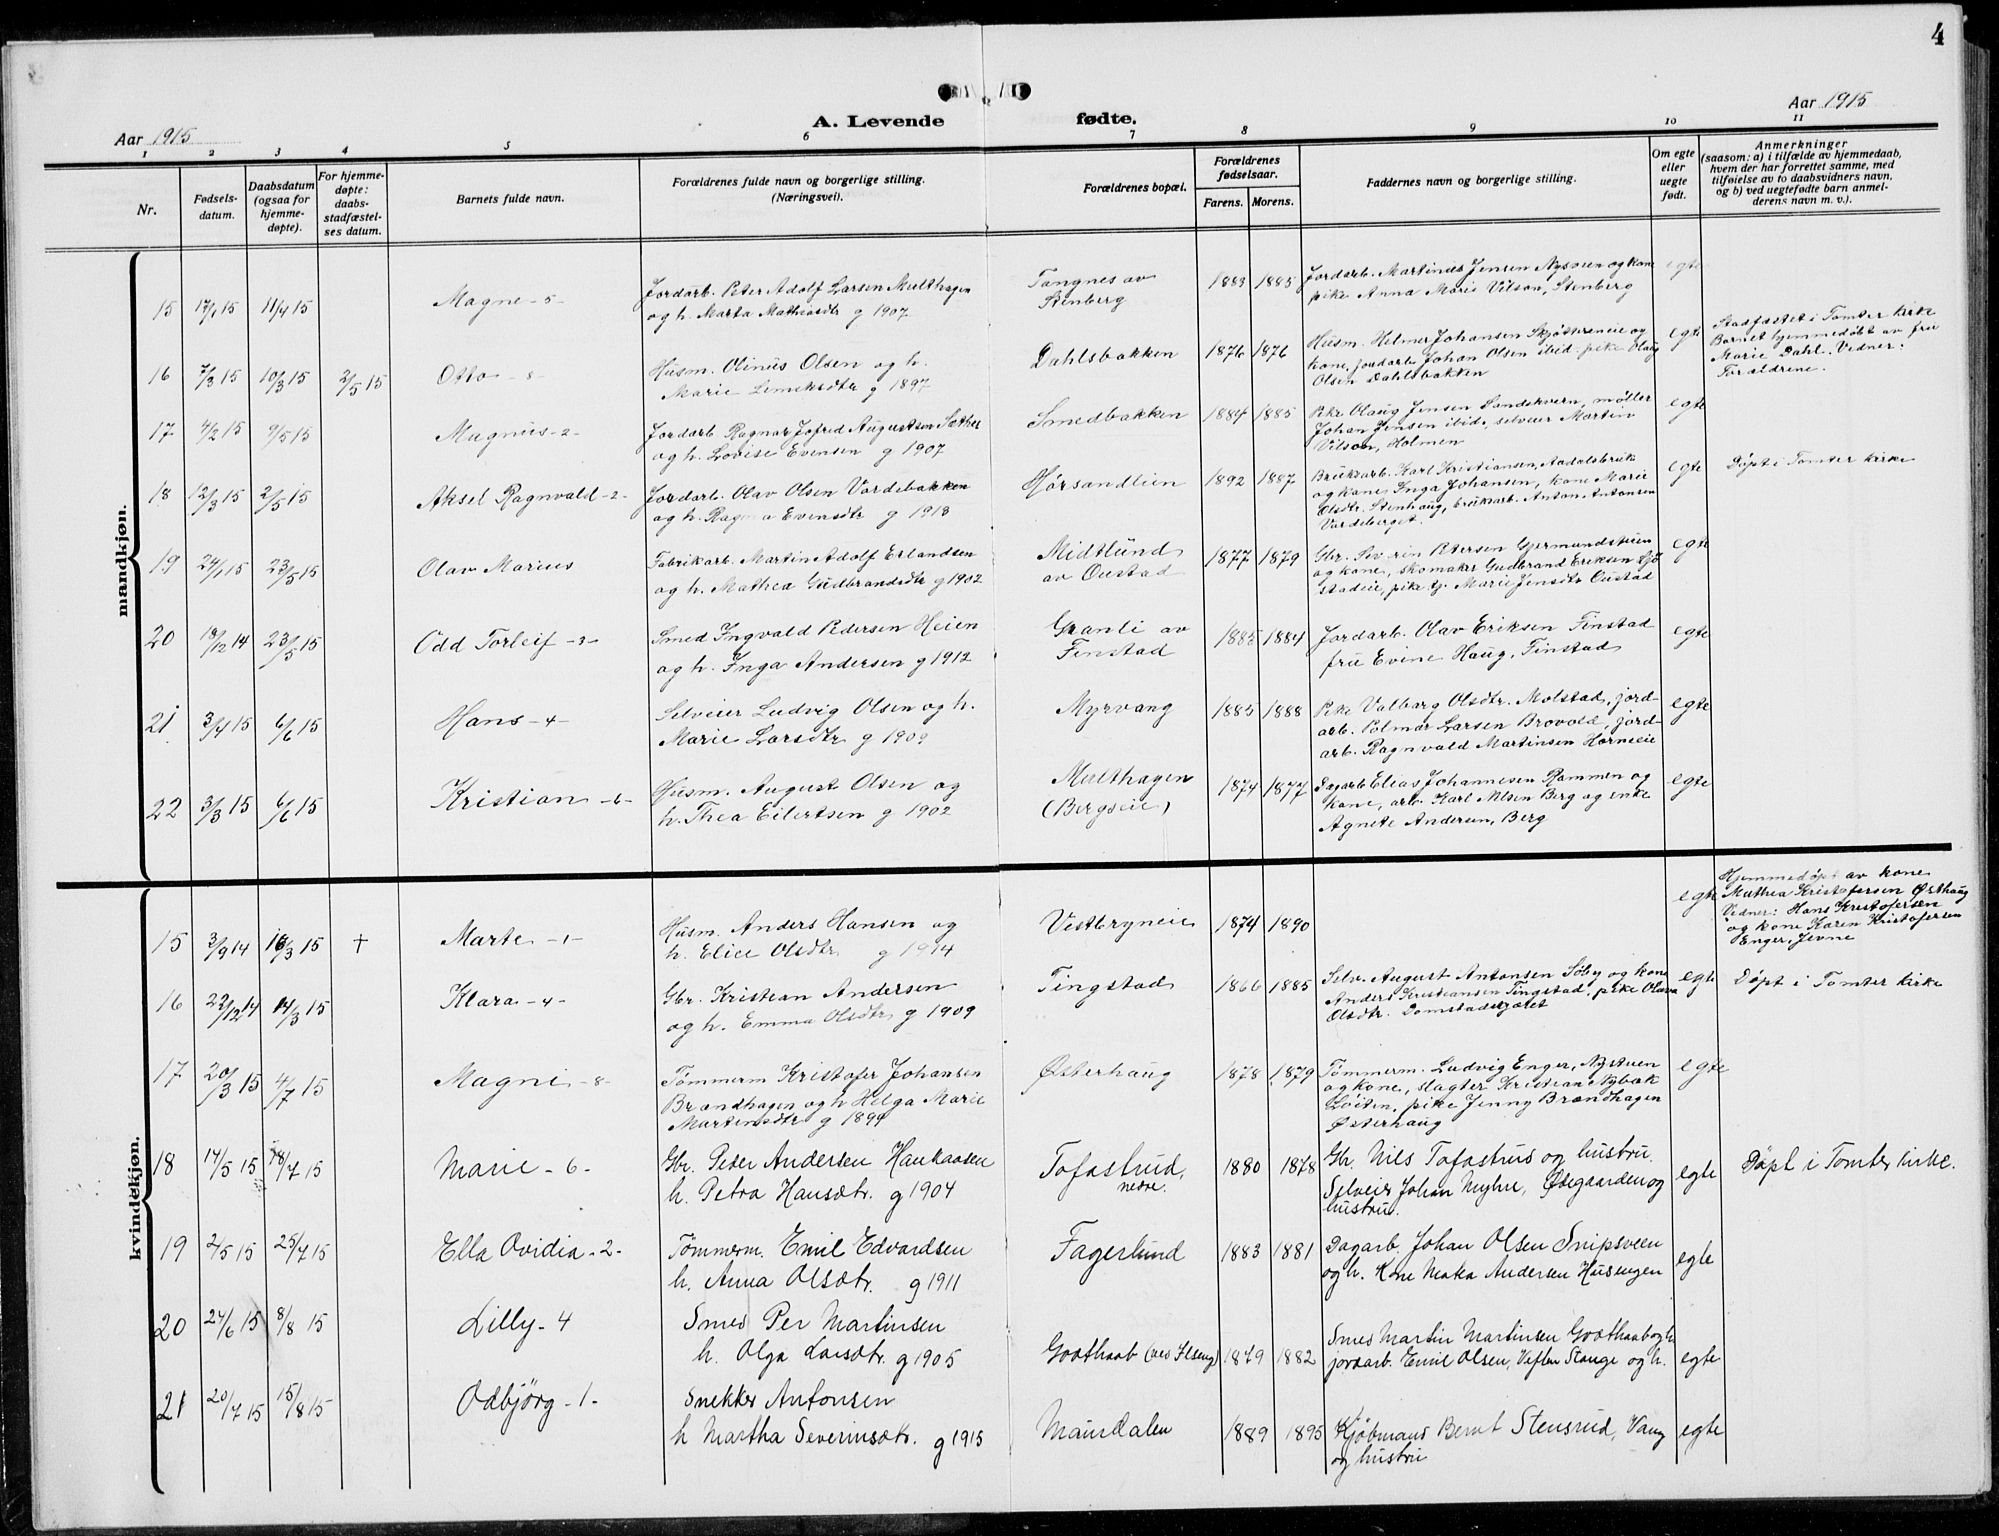 4
Aar 1915
A. Levende fødte.
Aar 1915
1 2 3 4 5 6 7 8 9 10 11
Nr.
Fødsels-
datum.
Daabsdatum
(ogsaa for
hjemme-
døpte).
For hjemme-
døpte:
daabs-
stadfæstel-
ses datum.
Barnets fulde navn.
Forældrenes fulde navn og borgerlige stilling.
(Næringsvei).
Forældrenes bopæl.
Forældrenes
fødselsaar.
Farens. Morens.
Faddernes navn og borgerlige stilling.
Om egte
eller
uegte
født.
Anmerkninger
(saasom: a) i tilfælde av hjemmedaab,
hvem der har forrettet samme, med
tilføielse av to daabsvidners navn,
og b) ved uegtefødte barn anmel-
derens navn m. v.).
mandkjøn.
15 17/1 15 11/4 15 Magne - 5 -
Jordarb. Peter Adolf Larsen Multhagen
og h. Marta Mathiasdtr g 1907
Tangnes av
Stenberg
1883 1885
Jordarb. Martinus Jensen Nysveen og kone
pike Anna Marie Vilson, Stenberg
egte
16 7/3 15 10/3 15 2/5 15 Otto - 8 -
Husm. Olinus Olsen og h.
Marie Lemeksdtr g 1897
Dahlsbakken
1876 1876
Husm. Helmer Johansen Skjøstereneie og
kone, jordarb Johan Olsen ibid. pike Olaug
Olsen Dahlsbakken
egte
Stadfæstet i Tomter kirke
Barnet hjemmedøbt av fru
Marie Dahl. Vedner:
Forældrene.
17 4/2 15 9/5 15 Magnus - 2 -
Jordarb Ragnar Jofred Augustsen Sæther
og h. Lovise Evensen g 1907
Smedbakken
1884 1885
Pike Olaug Jensen Sandskvern, møller
Johan Jensen ibid, selveier Martin
Vilson, Holmen
egte
18 12/3 15 2/5 15 Aksel Ragnvald - 2 -
Jordarb. Olav Olsen Vardebakken
og h. Ragna Evensdtr g 1913
Hørsandlien
1892 1887
Bruksarb. Karl Kristiansen, Aadalsbruk
og kone Inga Johansen, kone Marie
Olsdtr. Stenhaug, bruksarb. Anton Antonsen
Vardeberget.
egte
Døpt i Tomter kirke
19 24/1 15 23/5 15 Olav Marius
Fabrikarb. Martin Adolf Erlandsen
og h. Mathea Gudbrandsdtr g 1902
Midtlund
av Oustad
1877 1879
Gbr. Petersen Gjermundstuen
og kone, skomaker Gudbrand Eriksen
stadeie, pike tj. Marie Jensdtr Oustad
egte
20 18/12 14 23/5 15 Odd Torleif - 3 -
Smed Ingvald Pedersen Heien
og h. Inga Andersen g 1912
Granli av
Finstad
1885 1884
Jordarb. Olav Eriksen Finstad
fru Evine Haug, Finstad
egte
21 3/4 15 6/6 15 Hans - 4 -
Selveier Ludvig Olsen og h.
Marie Larsdtr g 1909
Myrvang
1885 1888
Pike Valborg Olsdtr. Molstad, jord-
arb. Polmar Larsen Brovold, jord-
arb. Ragnvald Martinsen Horneeie
egte
22 3/3 15 6/6 15 Kristian - 6 -
Husm. August Olsen og
h. Thea Eilertsen g 1902
Multhagen
(Bergseie)
1874 1877
Dagarb Elias Johannesen Rammen og
kone, arb. Karl Nilsen Berg og enke
Agnete Andersen, Berg
egte
kvindekjøn.
15 3/9 14 16/3 15 † Marte - 1 -
Husm. Anders Hansen og
h. Elise Olsdtr g 1914
Vestbryneie
1874 1890
egte
Hjemmedøpt av kone
Mathea Kristofersen Østhaug
Vedner: Hans Kristofersen
og kone Karen Kristofersen
Enger, Jevne
16 22/12 14 14/3 15 Klara - 4 -
Gbr. Kristian Andersen
og h. Emma Olsdtr g 1909
Tingstad
1866 1885
Selv. August Antonsen Søby og kone
Anders Kristiansen Tingstad, pike Olava
Olsdtr. Domstad
egte
Døpt i Tomter kirke
17 20/3 15 4/7 15 Magni - 8 -
Tømmerm Kristofer Johansen
Brændhagen og h Helga Marie
Martensdtr g 1899
Østerhaug
1878 1879
Tømmerm. Ludvig Enger, Nystuen
og kone, slagter Kristian Nybak
Løiten, pike Jenny Brændhagen
Østerhaug
egte
18 14/5 15 18/7 15 Marie - 6 -
Gbr. Peder Andersen Haukaasen
h. Petra Hansdtr. g 1904
Tofastrud,
nedre.
1880 1878
Gbr. Nils Tofastrud og hustru.
Selveier Johan Myhre, Ødegaarden og
hustru.
egte
Døpt i Tomter kirke.
19 2/5 15 25/7 15 Ella Ovidia - 2 -
Tømmerm. Emil Edvardsen
h. Anna Olsdtr. g 1911
Fagerlund
1883 1881
Dagarb. Johan Olsen Snipsveen
og h. Kone Maka Andersen Husengen
egte
20 24/6 15 8/8 15 Lilly - 4
Smed Per Martinsen
h. Olga Larsdtr. g 1905
Godthaab (ved Ilseng)
1879 1882
Smed Martin Martinsen Godthaab og h.
jordarb. Emil Olsen, Veflen Stange og h.
egte
21 20/7 15 15/8 15 Odbjörg - 1 -
Snekker Antonsen
h Martha Severinsdtr. g 1915
Maurdalen
1889 1895
Kjøbmand Bernt Stensrud, Vang
og hustru
egte